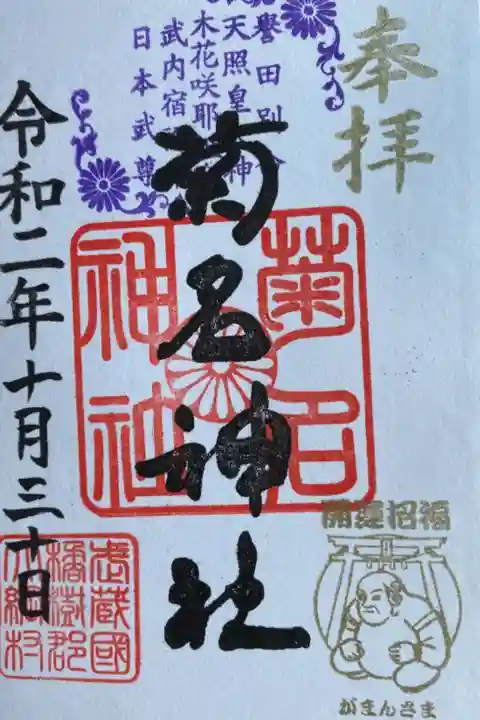 奉拝
誉田別命
天照皇大神
木花咲耶
武内宿
日本武尊
菊名神社
菊名
神社
令和二年十月三十日
武蔵國
橘樹郡
大綱村
開運招福
がまんさま